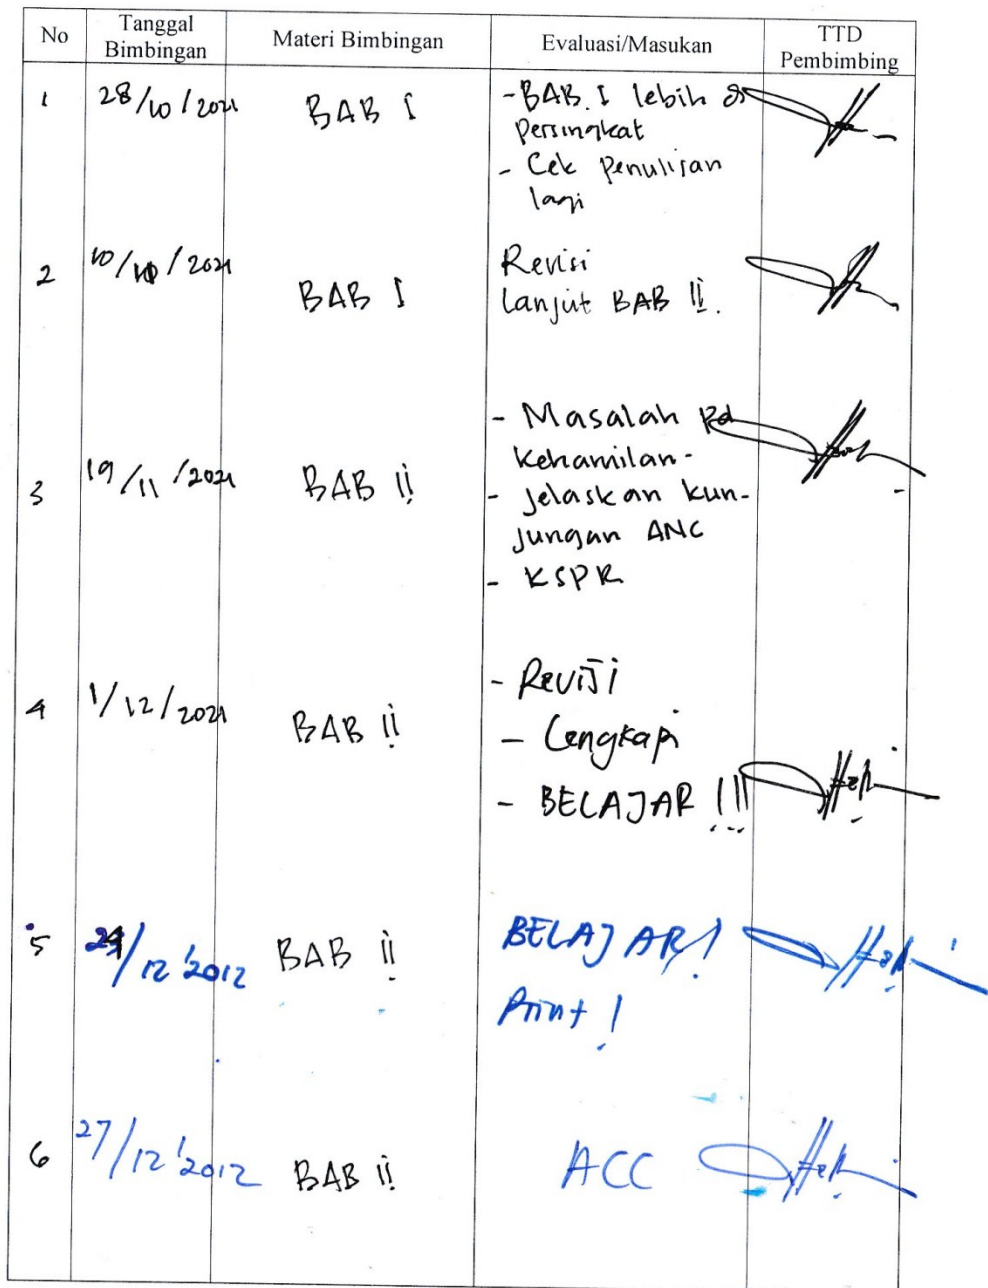 No Tanggal Bimbingan Materi Bimbingan Evaluasi/Masukan TTD Pembimbing
1 28/10/2021 BAB I -BAB. I lebih di
persingkat
- Cek penulisan
lagi
2 10/10/2021 BAB I Revisi
lanjut BAB II.
3 19/11/2021 BAB II - Masalah pd
kehamilan-
- Jelaskan kun-
jungan ANC
- KSPR
4 1/12/2021 BAB II - Revisi
- Lengkapi
- BELAJAR !!!
5 /12'2012 BAB II BELAJAR!
Print!
6 27/12'2012 BAB II ACC